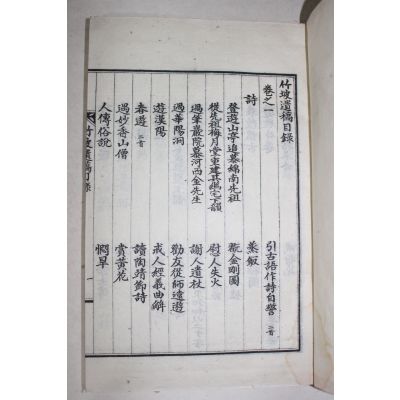 竹坡遺稿目錄
卷之一
詩
登遊山亭追慕綿南先祖
引古語作詩自警 二首
從先祖梅月堂重建
蒸飯
過筆巖院慕河西金先生
慰人失火
過華陽洞
謝人遺杖
遊漢陽
勸友從師遠遊
春遊 二首
戒人經義曲解
過妙香山僧
讀陶靖節詩
人傳俗說
賞黃花
憫旱
竹坡遺稿目錄